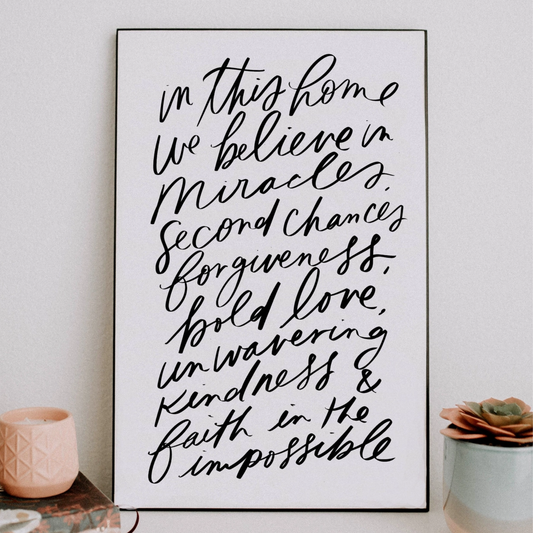 in this home
we believe in
miracles,
second chances
forgiveness,
bold love,
unwavering
kindness &
faith in the
impossible